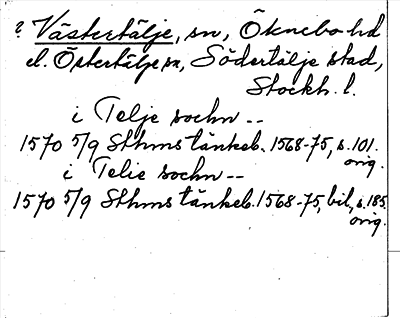 ? Västertälje, sn, Öknebo hd
el. Östertälje sn, Södertälje stad,
Stockh. l.
i Telje sochn --
1570 5/9 Sthms tänkeb. 1568-75, s. 101.
orig.
i Telie sochn --
1570 5/9 Sthms tänkeb. 1568-75, bil., s. 185.
orig.